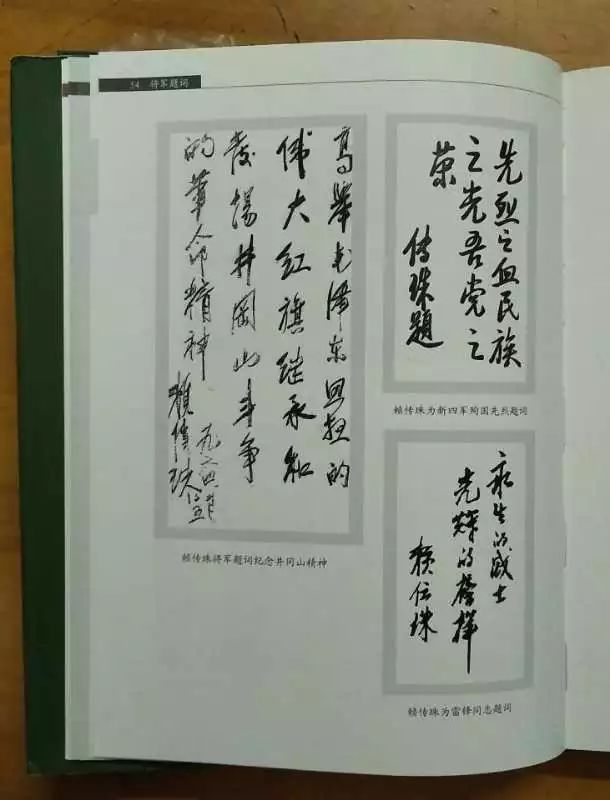 将军题词
高舉毛泽东思想的
伟大红旗继承和
发揚井岡山斗争
的革命精神
赖傳珠
一九六四
赖传珠将军题词纪念井冈山精神
先烈之血民族
之光吾党之
荣
传珠題
赖传珠为新四军殉国先烈题词
永生的战士
光辉的榜样
赖传珠
赖传珠为雷锋同志题词